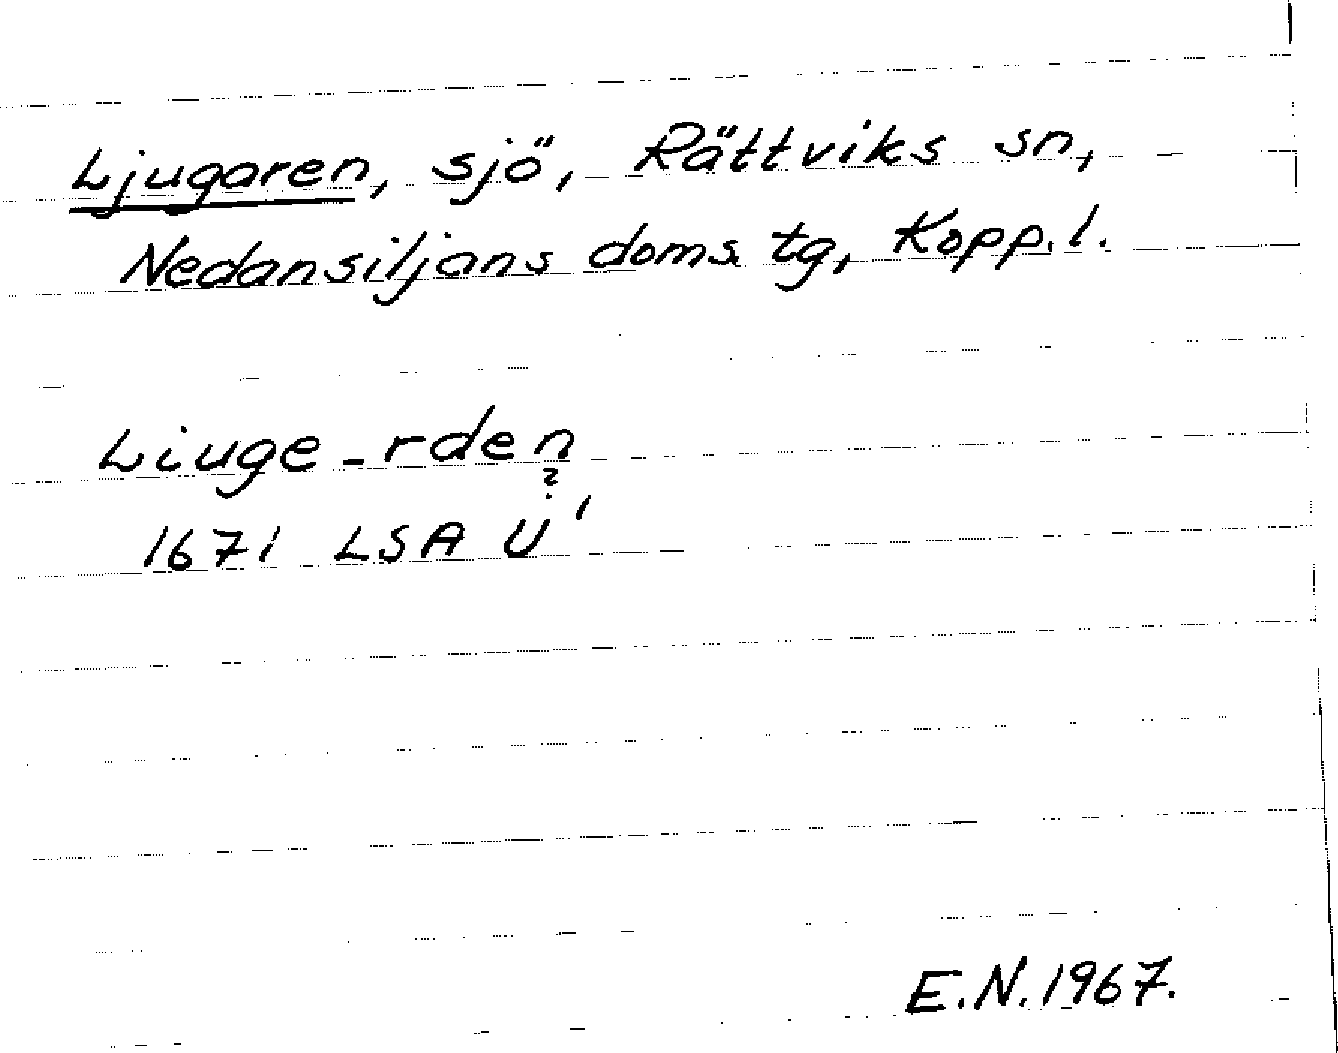 Ljugaren, sjö, Rättviks sn,
Nedansiljans doms. tg, Kopp.l.
Liuge-rden
?
1671 LSA U'
E.N.1967.